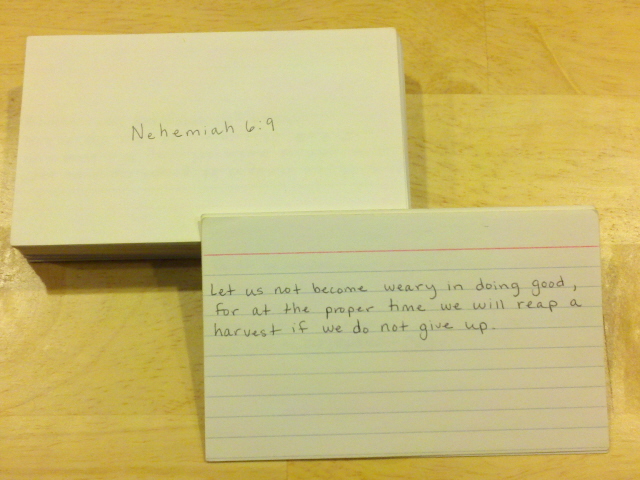 Nehemiah 6:9
Let us not become weary in doing good,
for at the proper time we will reap a
harvest if we do not give up.